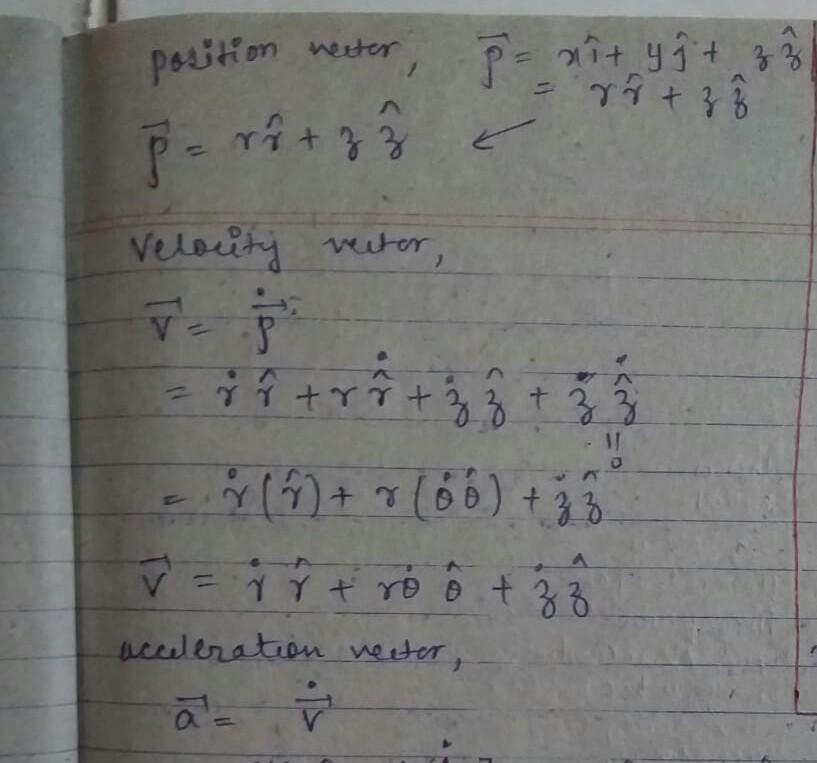 position vector, ρ⃗ = xî + yĵ + zẑ
= rr̂ + zẑ
ρ⃗ = rr̂ + zẑ ↙
velocity vector,
v⃗ = ρ⃗̇
= ṙ r̂ + r r̂̇ + ż ẑ + z ẑ̇
"
0
= ṙ(r̂) + r(θ̇ θ̂) + ż ẑ
v⃗ = ṙ r̂ + rθ̇ θ̂ + ż ẑ
acceleration vector,
a⃗ = v⃗̇